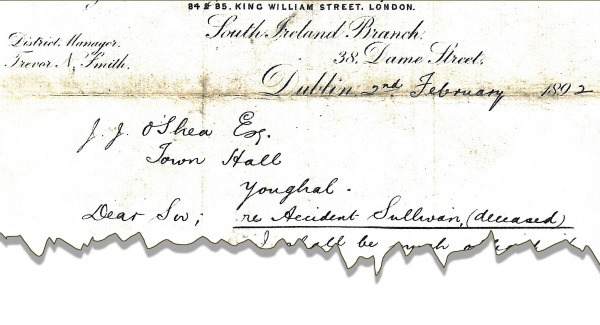 84 & 85. KING WILLIAM STREET. LONDON.
South Ireland Branch.
District Manager.
Trevor N. Smith.
38, Dame Street.
Dublin, 2nd February 1892
J. J. O'Shea Esq.
Town Hall
Youghal.
Dear Sir, re Accident Sullivan, (deceased)
I shall be much